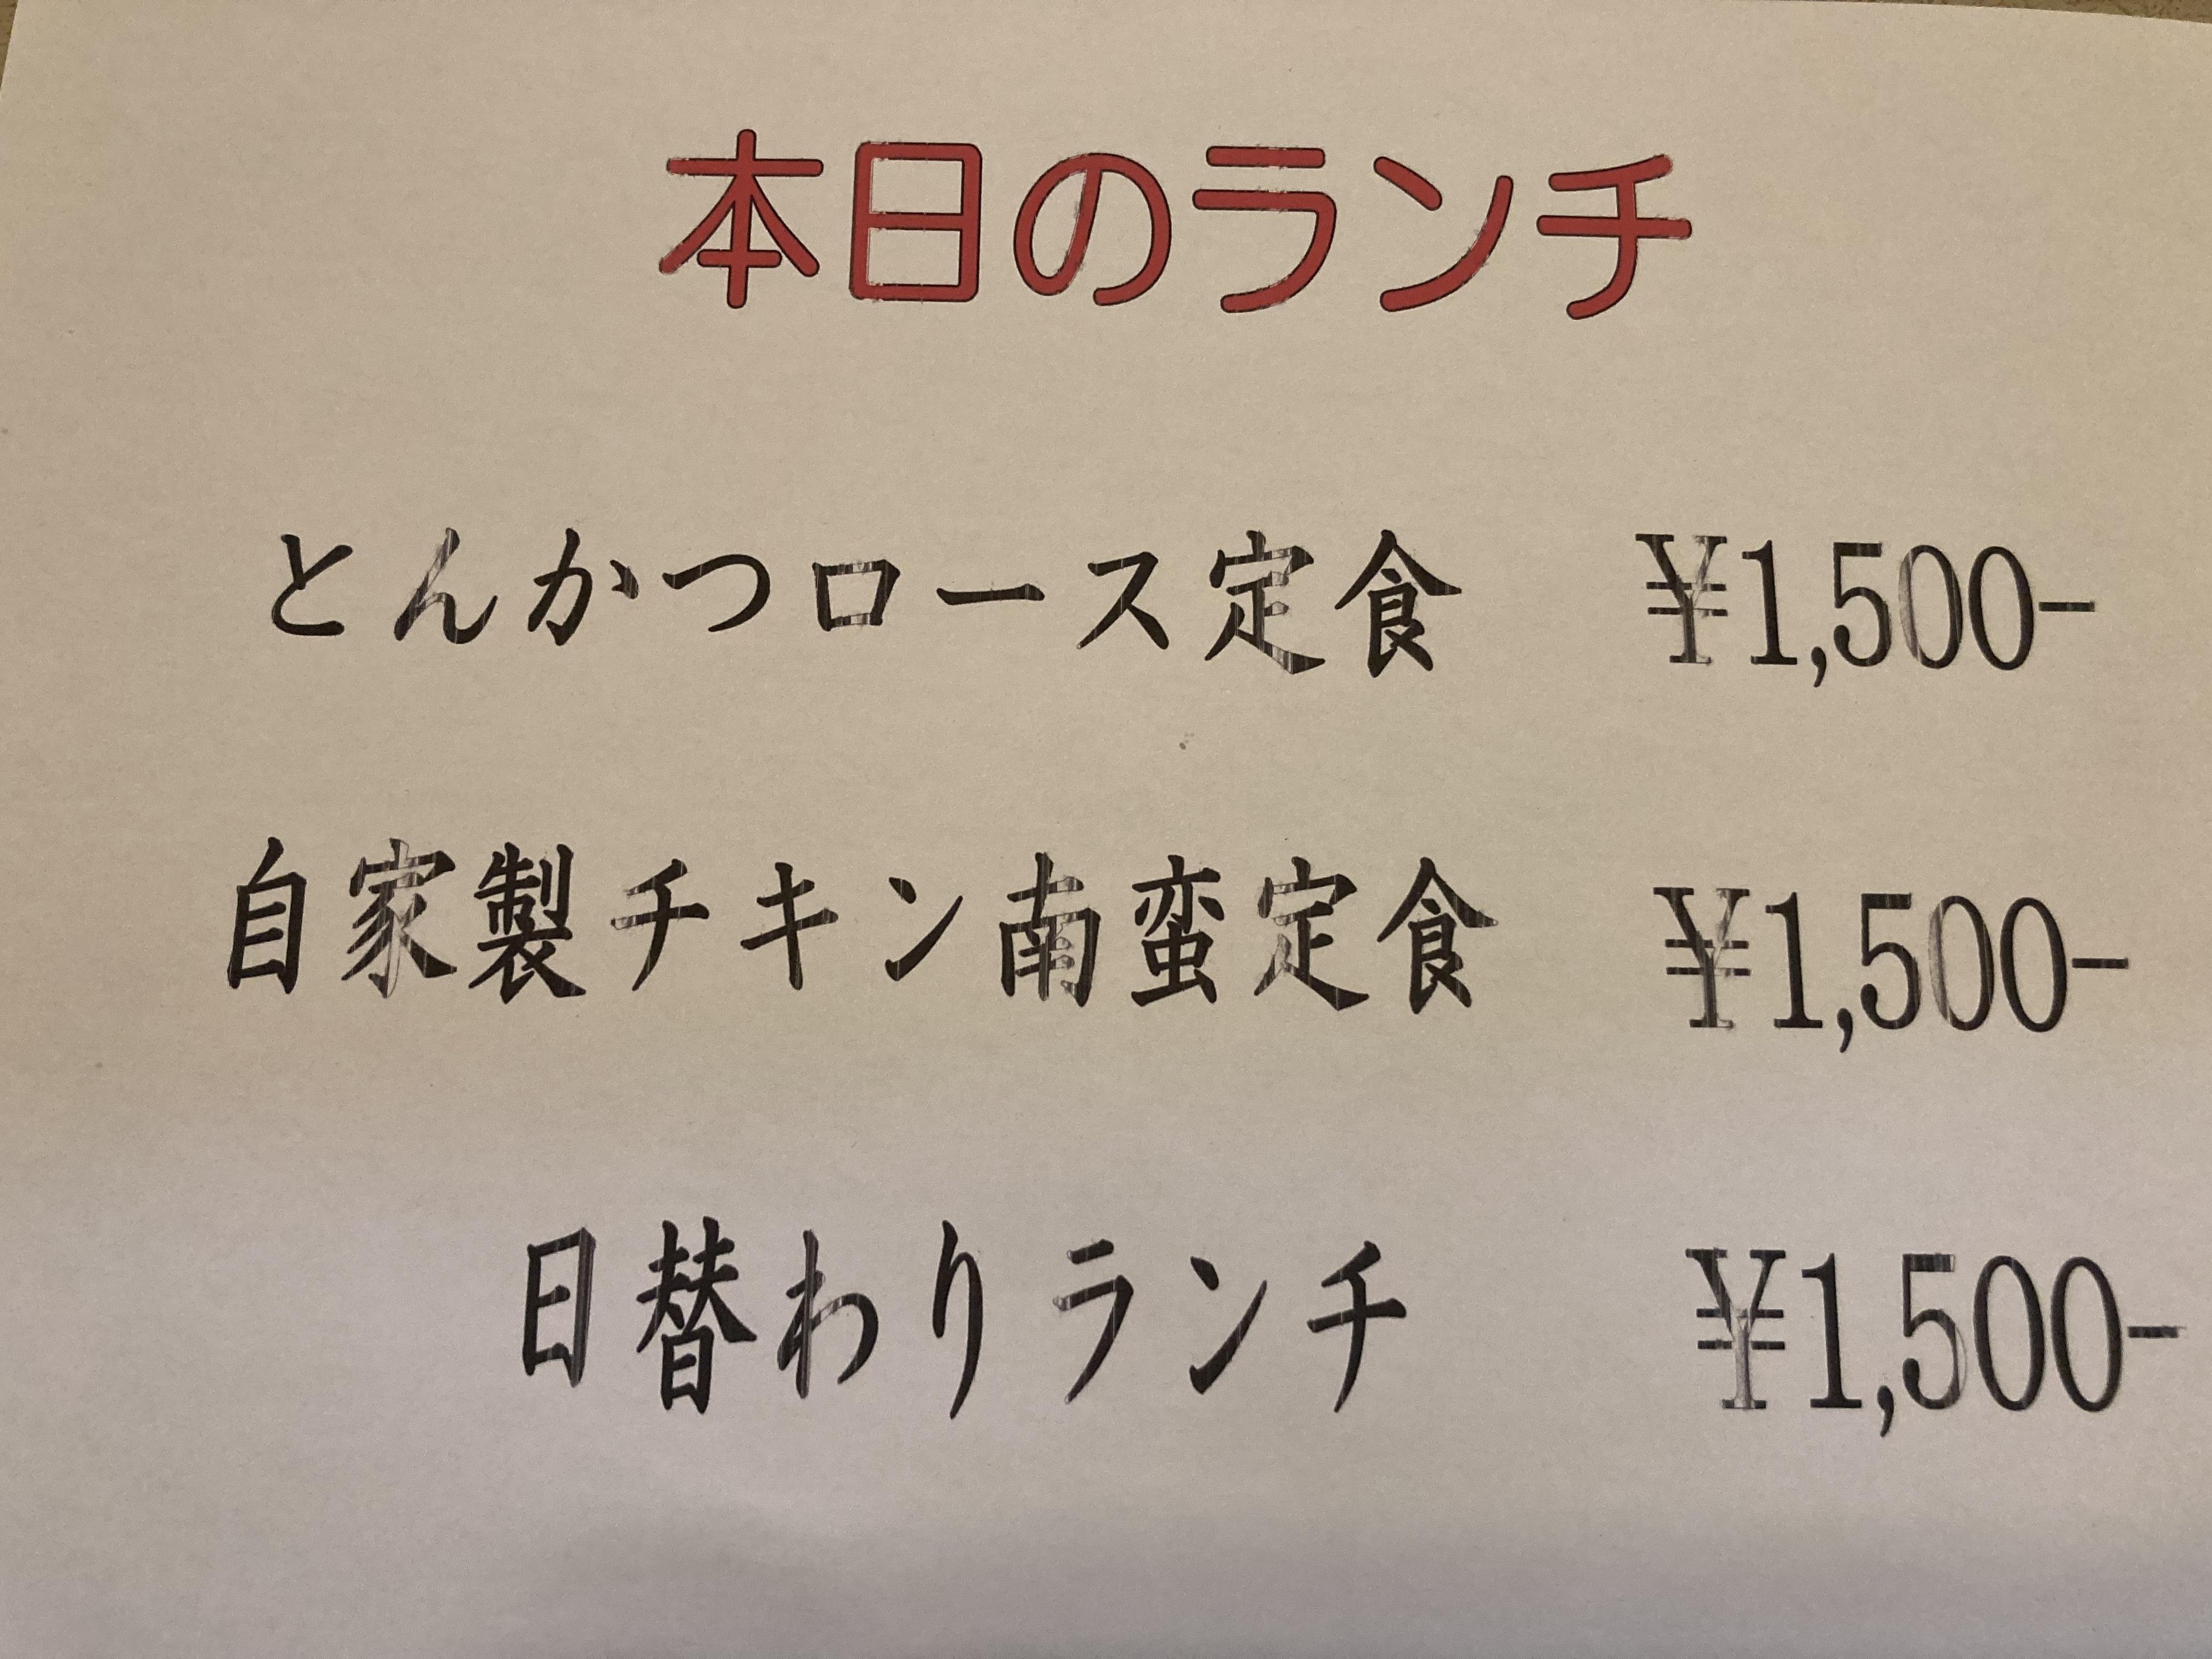 本日のランチ
とんかつロース定食 ¥1,500-
自家製チキン南蛮定食 ¥1,500-
日替わりランチ ¥1,500-